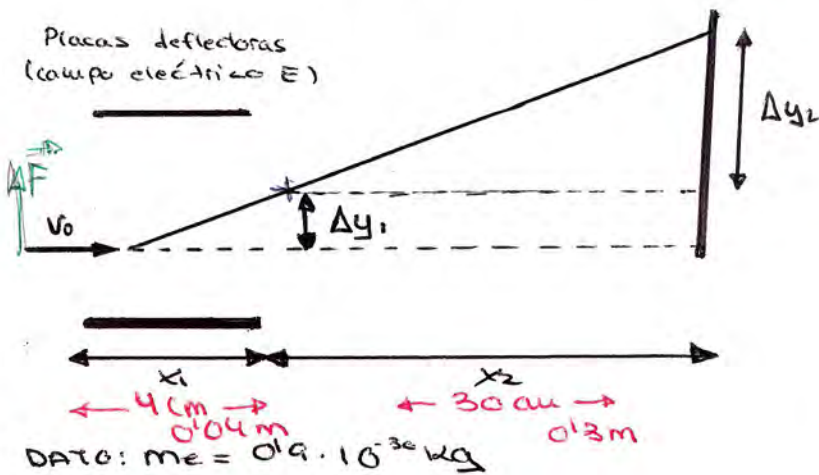 Placas deflectoras
(campo eléctrico E)
F
V₀
Δy₁
Δy₂
x₁
x₂
4 cm
0'04 m
30 cm
0'3 m
DATO: me = 0'9 · 10⁻³⁰ kg